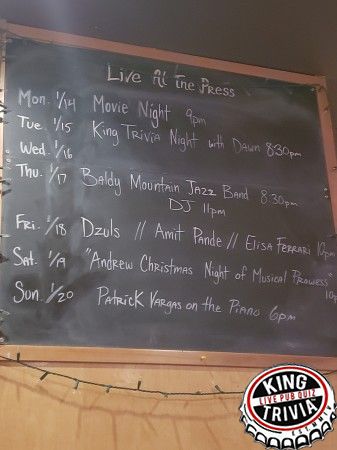 Live At The Press
Mon. 1/14 Movie Night 9pm
Tue. 1/15 King Trivia Night with Dawn 8:30pm
Wed. 1/16
Thu. 1/17 Baldy Mountain Jazz Band 8:30pm
DJ 11pm
Fri. 1/18 Dzuls // Amit Pande // Elisa Ferrari 10pm
Sat. 1/19 "Andrew Christmas Night of Musical Prowess"
10p
Sun. 1/20 Patrick Vargas on the Piano 6pm
KING
LIVE PUB QUIZ
TRIVIA